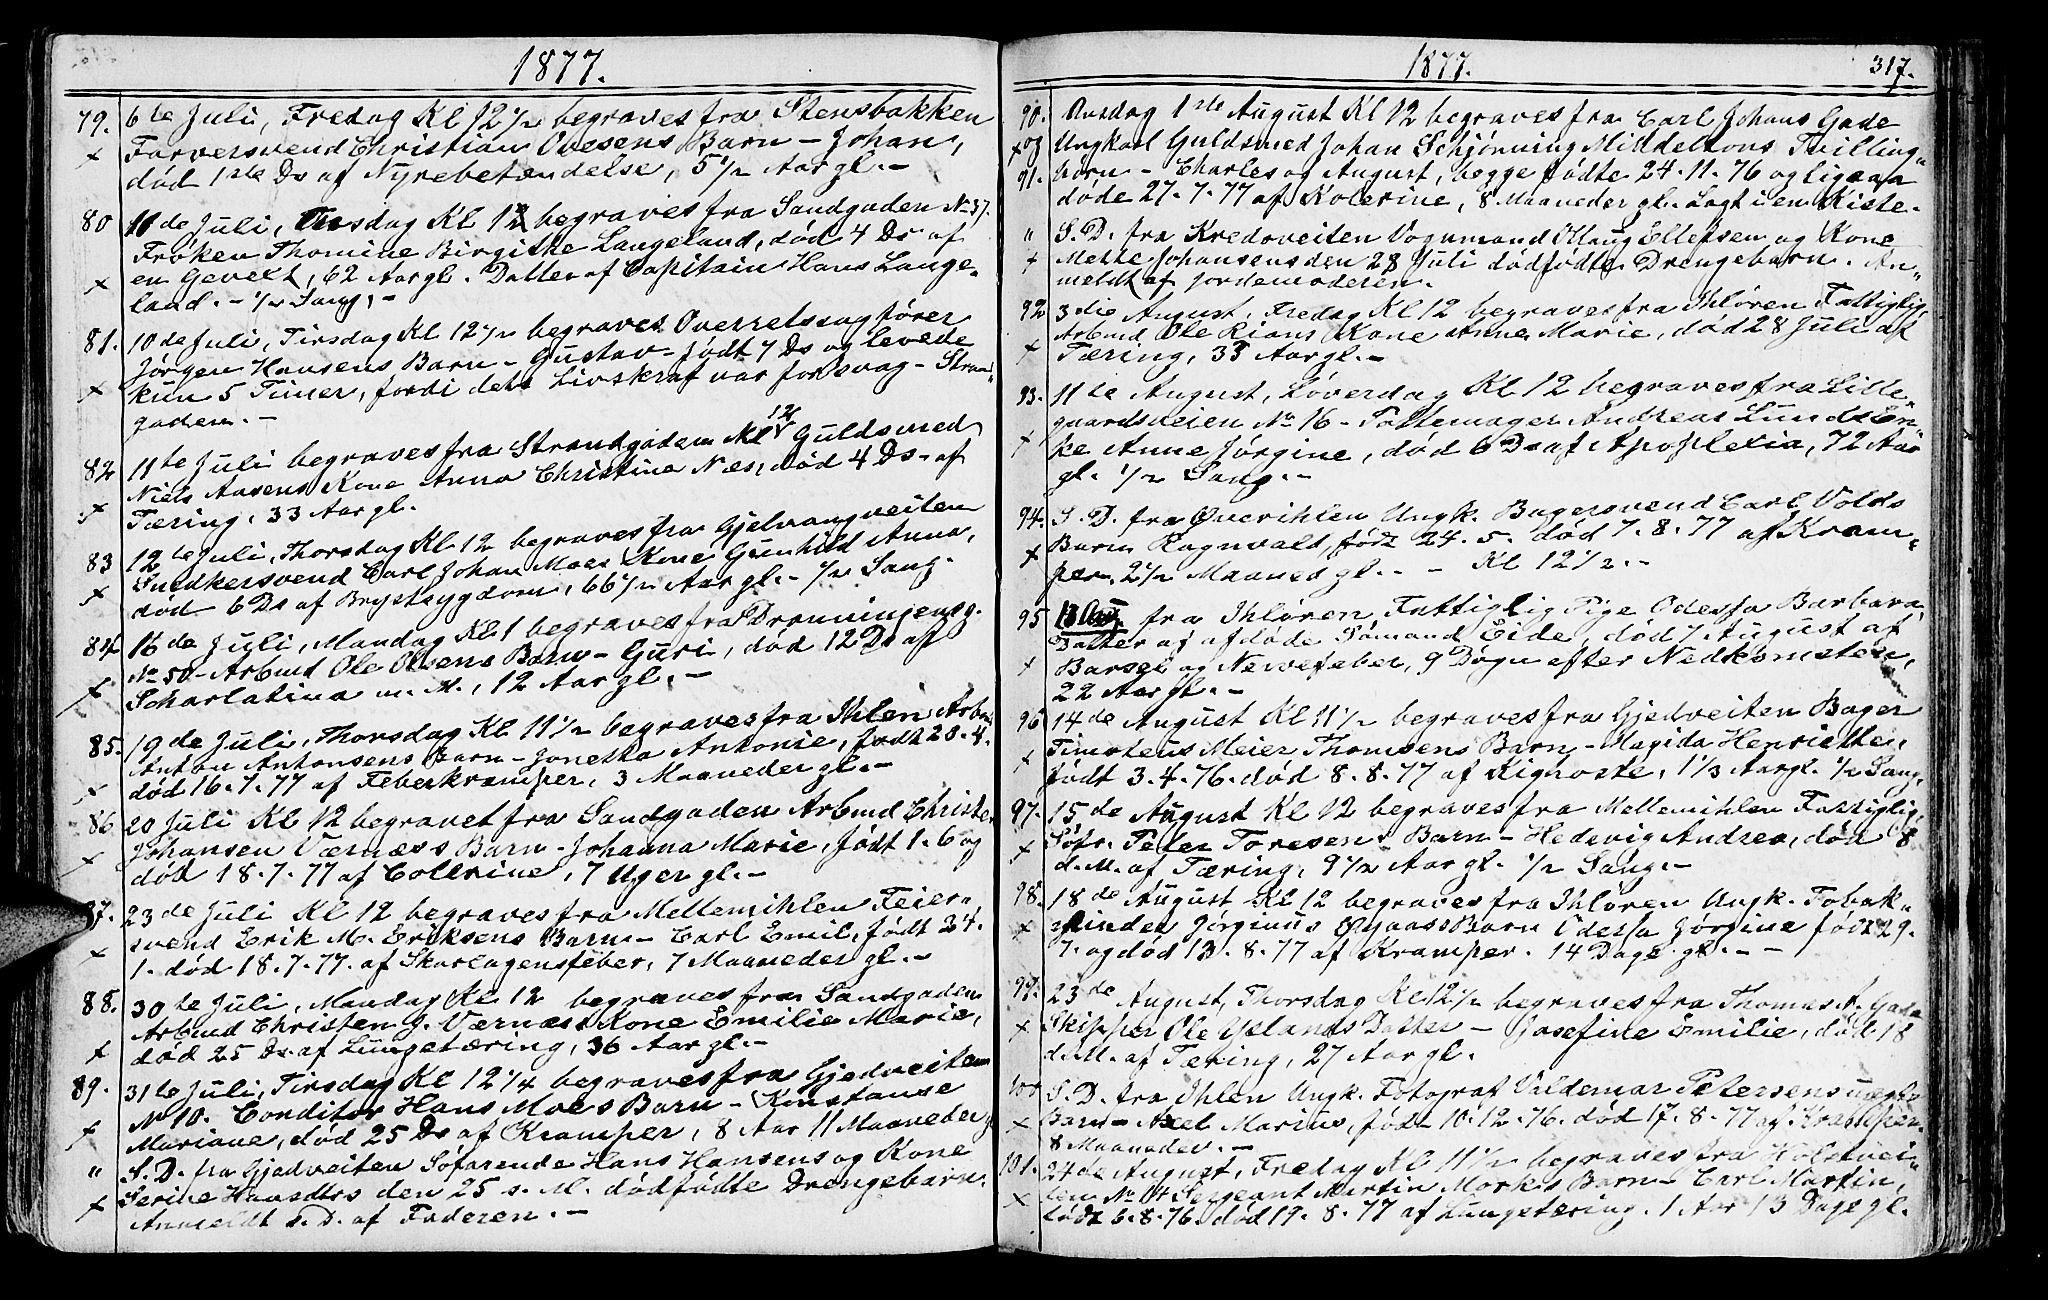 1877.
79. 6te Juli, Fredag Kl 12 1/2 begraves fra Stensbakken
x Farversvend Christian Ovesens Barn - Johan,
død 1ste Ds af Nyrebetændelse, 5 1/2 Aar gl. -
80 11de Juli, Onsdag Kl 12 begraves fra Sandgaden No 37.
Frøken Thomine Birgitte Langeland, død 4 Ds af
x en Gevext, 62 Aar gl. Datter af Capitain Hans Lange-
land. - 1/2 Sang. -
81. 10de Juli, Tirsdag Kl 12 1/2 begraves Overretssagfører
Jørgen Hansens Barn - Gustav - født 7 Ds og levede
x kun 5 Timer, fordi dets Livskraf var for svag - Strand-
gaden. -
82 11te Juli begraves fra Strandgaden Kl 12 Guldsmed
Niels Aasens Kone Anna Christine Næs, død 4 Ds. af
x Tæring, 33 Aar gl.
83 12te Juli, Thorsdag Kl 12 begraves fra Gjelvangveiten
Snedkersvend Carl Johan Moes Kone Gunhild Anna,
x død 6 Ds af Brystsygdom, 66 1/2 Aar gl. - 1/2 Sang.
84 16de Juli, Mandag Kl 1 begraves fra Dronningensg.
No 50 - Arbmd Ole Olsens Barn - Guri, død 12 Ds af
x Scharlatina m. M., 12 Aar gl. -
85. 19de Juli, Thorsdag Kl 11 1/2 begraves fra Ihlen Arbmd
Anton Antonsens Barn - Jonetta Antonie, født 20. 4.
x død 16. 7. 77 af Feberkramper, 3 Maaneder gl. -
86. 20 Juli Kl 12 begravet fra Sandgaden Arbmd Christen
x Johansen Værnæs's Barn - Johanna Marie, født 1. 6 og
død 18. 7. 77 af Colerine, 7 Uger gl. -
87. 23de Juli Kl 12 begraves fra Mellemihlen Feier-
x svend Erik M. Eriksens Barn - Carl Emil, født 24.
1. død 18. 7. 77. af Skarlagensfeber, 7 Maaneder gl. -
88. 30te Juli, Mandag Kl 12 begraves fra Sandgaden
Arbmd Christen J. Værnæs's Kone Emilie Marie,
x død 25 Ds. af Lungetæring, 36 Aar gl. -
89. 31te Juli, Tirsdag Kl 12 1/4 begraves fra Gjedveiten
No 10. Conditor Hans Moes Barn - Konstanse
x Mariane, død 25 Ds af Kramper, 8 Aar 11 Maaneder gl
" S. D. fra Gjedveiten Søfarende Hans Hansens og Kone
x Serine Hansdtrs den 25 s. M. dødfødte Drengebarn.
Anmeldt s. D. af Faderen. -
1877. 317.
90. Onsdag 1ste August Kl 12 begraves fra Carl Johans Gade
x og Ungkarl Guldsmed Johan Schjønning Middeltons Tvilling-
91. børn - Charles og August, begge fødte 24. 11. 76 og ligesaa
døde 27. 7. 77 af Kolerine, 8 Maaneder gl. Lagt i en Kiste.
" S. D. fra Kredoveiten Vognmand Ellefsen og Kone
x Mette Johansens den 28 Juli dødfødte Drengebarn. An-
meldt af Jordemoderen.
92 3die August, Fredag Kl 12 begraves fra Ihløren Fattiglig,
Arbmd Ole Rians Kone Anne Marie, død 28 Juli af
x Tæring, 33 Aar gl. -
93. 11te August, Løverdag Kl 12 begraves fra Lille-
gaardsveien No 16 - Pottemager Andreas Lunds En-
x ke Anne Jørgine, død 6 Ds af Apoplexia, 72 Aar
gl. 1/2 Sang. -
94. S. D. fra Øverihlen Ungk. Bagersvend Carl Volds
x Barn Ragnvald, født 24. 5. død 7. 8. 77 af Kram-
per, 2 1/2 Maaned gl. - - Kl 12 1/2. -
95 13 Aug. fra Ihløren, Fattiglig Pige Odessa Barbara
Datter af afdøde Sømand Eide, død 7 August af
x Barsel og Nervefeber, 9 Døgn efter Nedkomsten,
22 Aar gl. -
96 14de August Kl 11 1/2 begraves fra Gjedveiten Bager
Timoteus Meier Thomsens Barn - Magida Henriette,
x født 3. 4. 76. død 8. 8. 77 af Kighoste, 1 1/3 Aar gl. 1/2 Sang.
97. 15de August Kl 12 begraves fra Mellemihlen Fattiglig,
x Søfr. Peter Toresens Barn - Hedevig Andrea, død 8
d. M. af Tæring, 9 1/2 Aar gl. 1/2 Sang. -
98. 18de August Kl 12 begraves fra Ihløren Ungk. Tobak-
x spinder Jørginus Øyaas's Barn Odessa Jørgine født 29.
7. og død 13. 8. 77 af Kramper. 14 Dage gl. - -
99. 23de August, Thorsdag Kl 12 1/2 begraves fra Thomas A. Gade
x Skipper Ole Yslands Datter - Josefine Emilie, død 18
d. M. af Tæring, 27 Aar gl.
100 S. D. fra Ihlen Ungk. Fotograf Valdemar Petersens uægte
x Barn - Axel Marius, født 10. 12. 76. død 17. 8. 77 af Kramper
8 Maaneder. -
101. 24de August, Fredag Kl 11 1/2 begraves fra Holstvei-
ten No 14 Sergeant Martin Morks Barn - Carl Martin,
x født 6. 8. 76. død 19. 8. 77 af Lungetæring. 1 Aar 13 Dage gl.